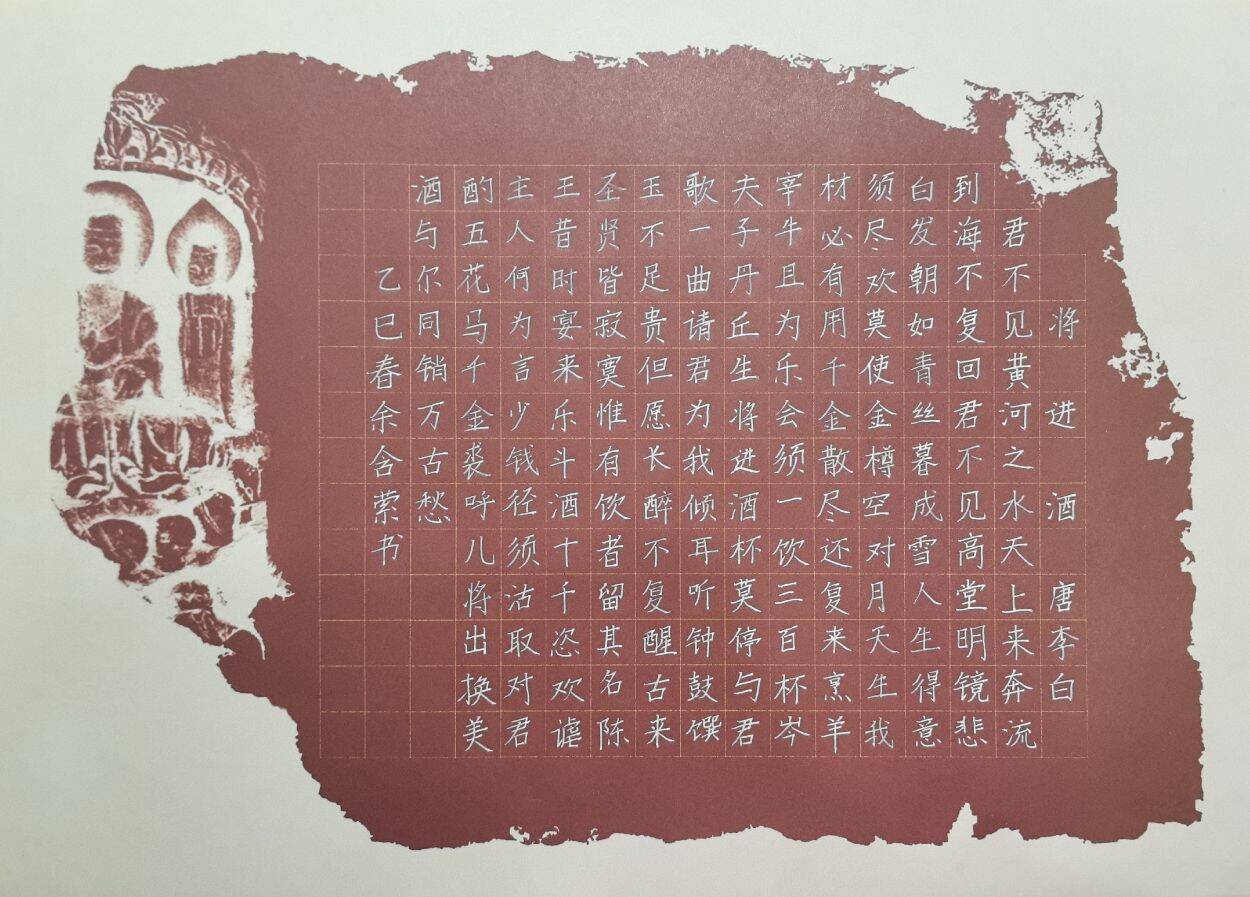 将进酒 唐李白
君不见黄河之水天上来奔流
到海不复回君不见高堂明镜悲
白发朝如青丝暮成雪人生得意
须尽欢莫使金樽空对月天生我
材必有用千金散尽还复来烹羊
宰牛且为乐会须一饮三百杯岑
夫子丹丘生将进酒杯莫停与君
歌一曲请君为我倾耳听钟鼓馔
玉不足贵但愿长醉不复醒古来
圣贤皆寂寞惟有饮者留其名陈
王昔时宴来乐斗酒十千恣欢谑
主人何为言少钱径须沽取对君
酌五花马千金裘呼儿将出换美
酒与尔同销万古愁
乙巳春余含萦书